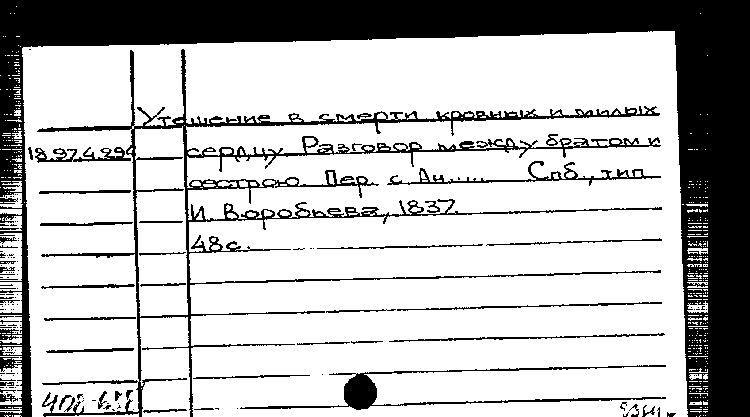 Утешение в смерти кровных и милых
18.97.4.294 сердцу. Разговор между братом и
сестрою. Пер. с Ан..... Спб., тип.
И. Воробьева, 1837.
48 с.